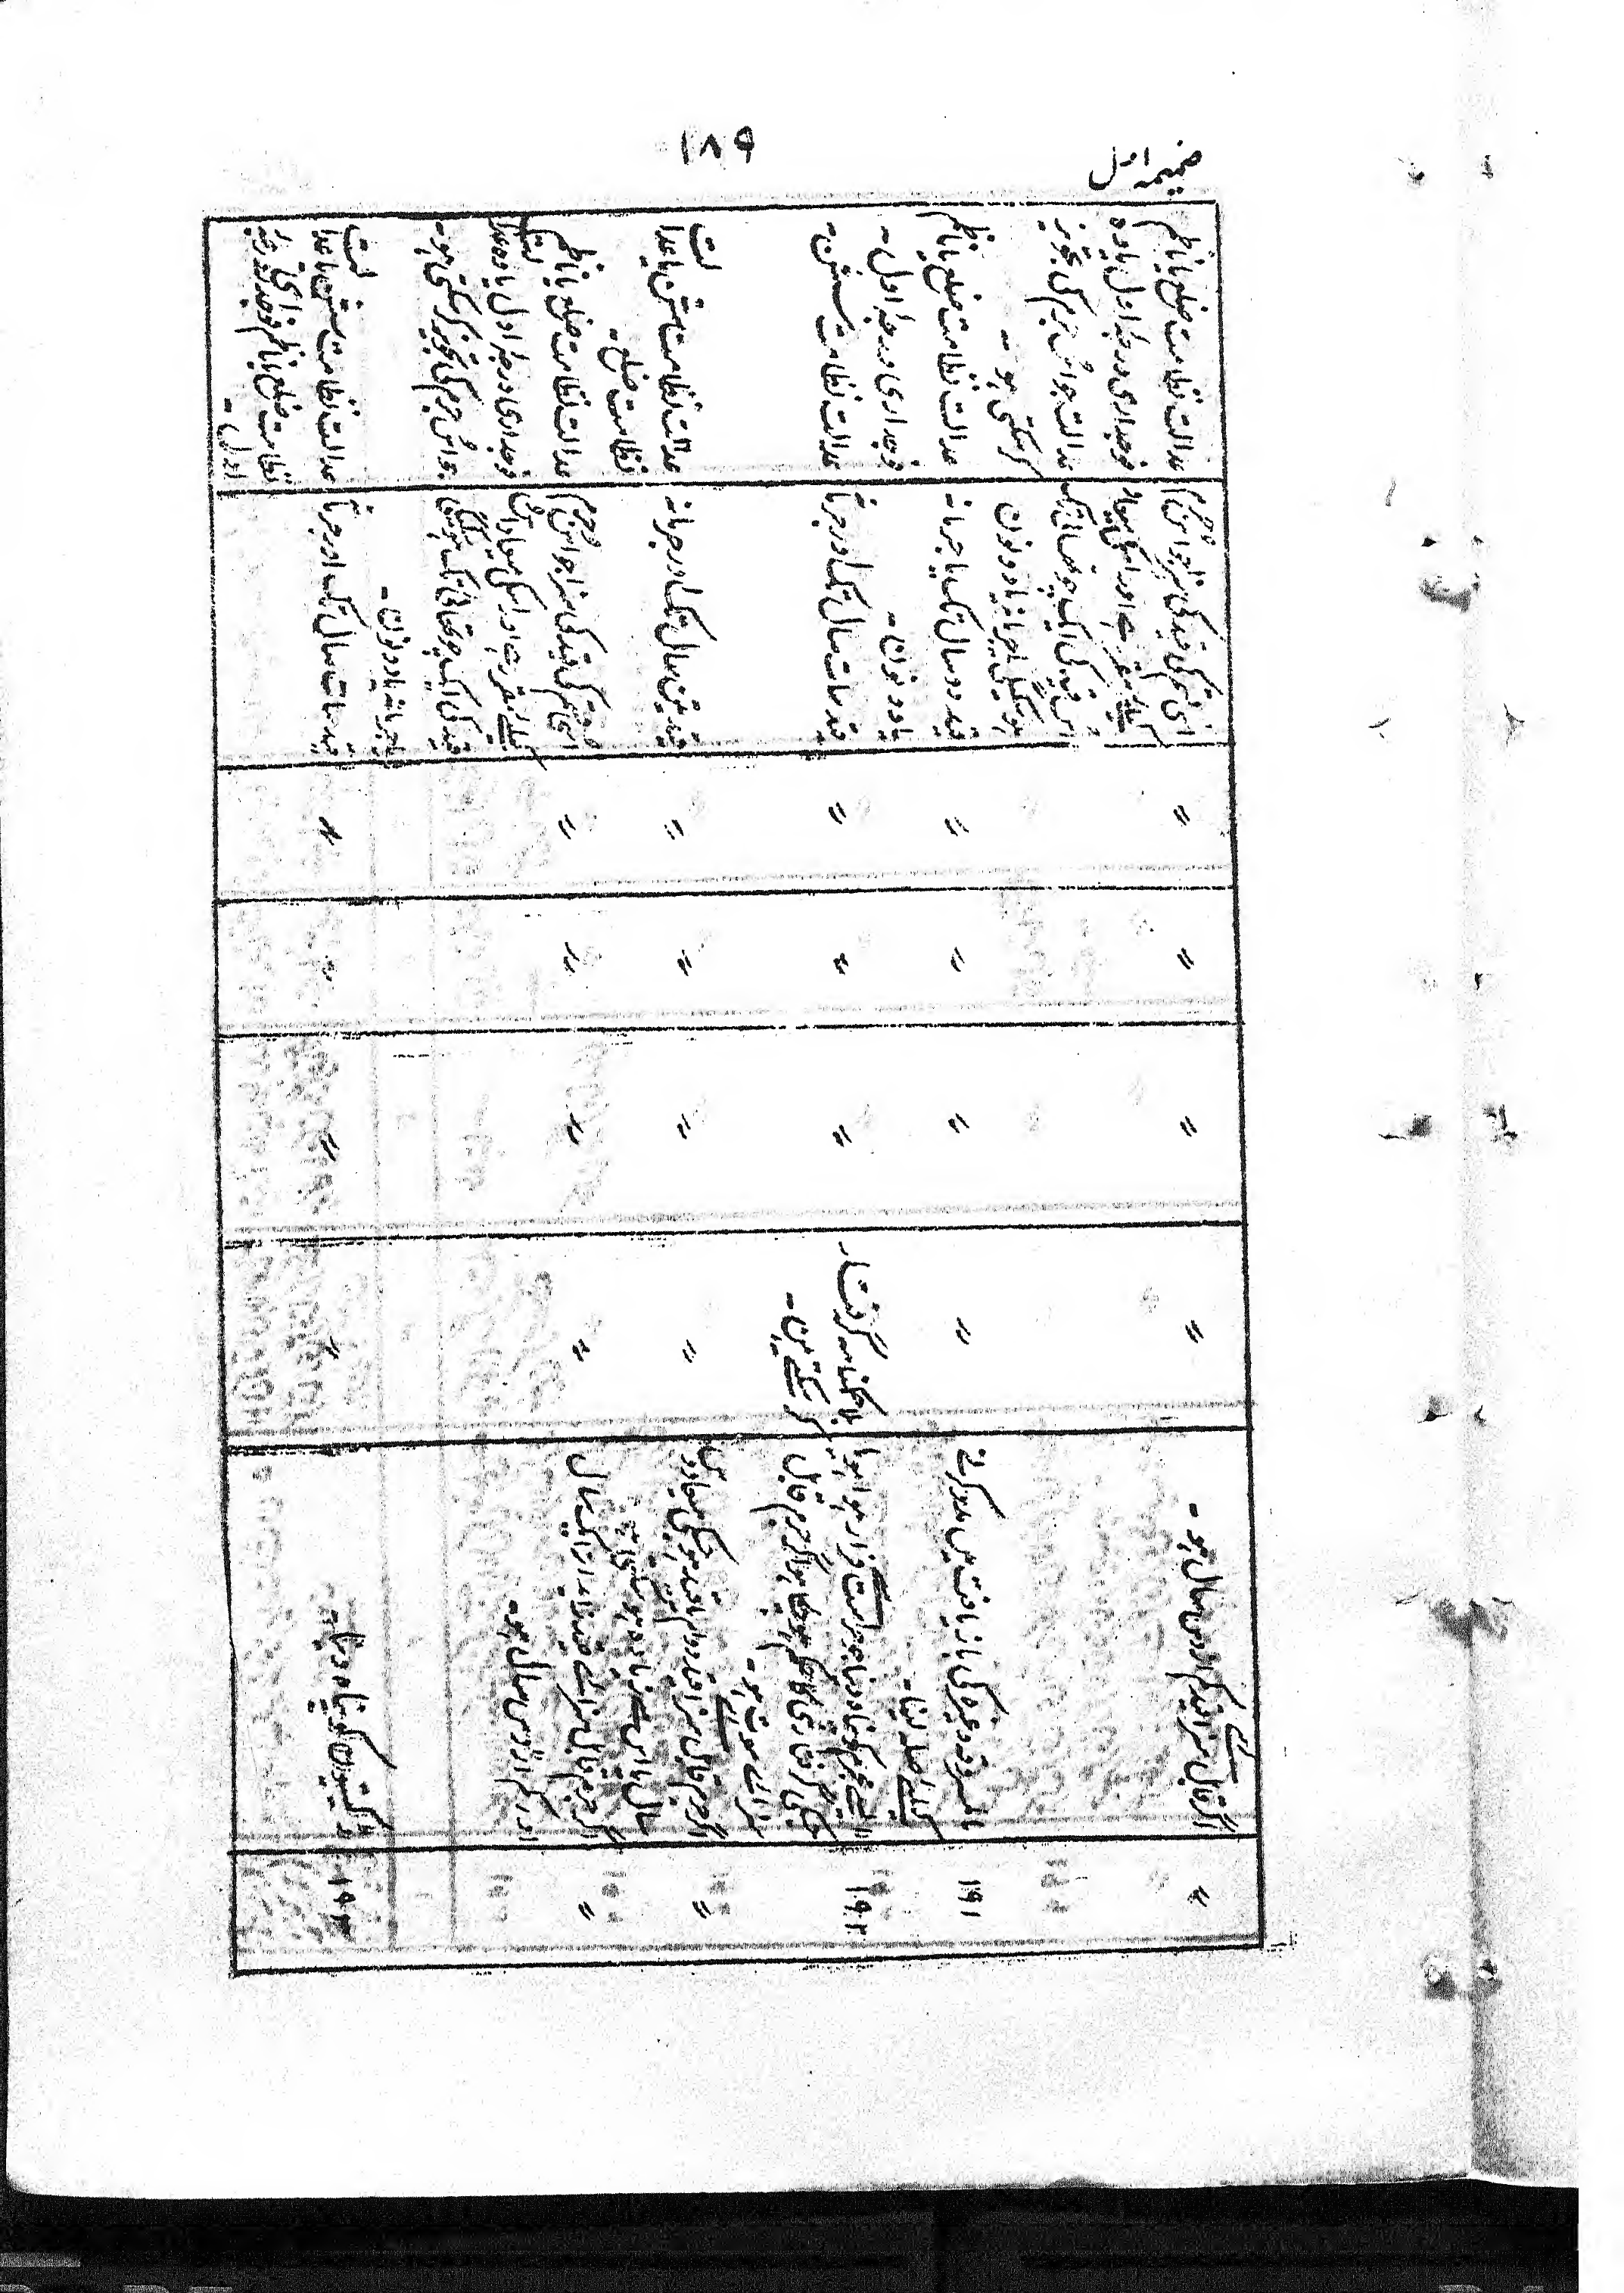 ۱۸۹
ضمیمہ اول
〃
اگر قابل سزائے قید کم از دس سال ہو۔
〃
〃
〃
〃
اسی قسم کی قید کی سزا جو اس جرم
کیلئے مقرر ہے اور اسکی میعاد
اس قید کی ایک چوتھائی تک
ہو سکیگی یا جرمانہ یا دونوں
عدالت نظامت ضلع یا ناظم
فوجداری درجہ اول یا وہ
عدالت جو اس جرم کی تجویز
کر سکتی ہو۔
۱۹۱
مال مسروقہ وغیرہ کی بازیافت میں مدد کرنے
کیلئے صلہ لینا۔
〃
〃
〃
〃
قید دو سال تک یا جرمانہ
یا دونوں۔
عدالت نظامت ضلع یا ناظم
فوجداری درجہ اول۔
۱۹۲
ایسے مجرم کو پناہ دینا جو حراست سے فرار ہوا ہو یا
جسکی گرفتاری کا حکم ہو چکا ہو اگر جرم قابل
سزائے موت ہو۔
بلا حکمنامہ گرفتار
کر سکتے ہیں۔
〃
〃
〃
قید سات سال تک اور جرمانہ
عدالت نظامت سشن۔
〃
اگر جرم قابل سزائے قید دوام یا قید ہو جسکی میعاد دس
سال یا اس سے زیادہ ہو سکتی ہے
〃
〃
〃
〃
قید تین سال تک اور جرمانہ
عدالت نظامت سشن یا عدالت
نظامت ضلع۔
〃
اگر جرم قابل سزائے قید زاید از ایک سال
اور کم از دس سال ہو۔
〃
〃
〃
〃
اسی قسم کی قید کی سزا جو اس جرم
کیلئے مقرر ہے اور اسکی میعاد اس
قید کی ایک چوتھائی تک ہو سکیگی
یا جرمانہ یا دونوں۔
عدالت نظامت ضلع یا ناظم
فوجداری درجہ اول یا وہ عدالت
جو اس جرم کی تجویز کر سکتی ہو۔
۱۹۳
ڈکیتوں کو پناہ دینا۔
〃
〃
〃
〃
قید سات سال تک اور جرمانہ
عدالت نظامت سشن یا عدالت
نظامت ضلع یا ناظم فوجداری درجہ
اول۔